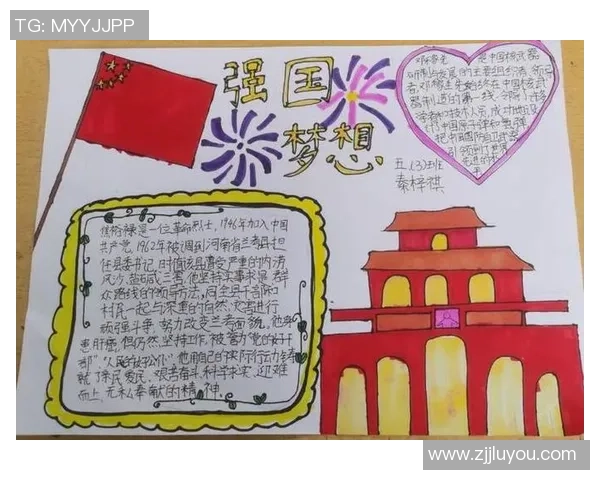 TG: MYYJJPP
强国
梦想
五(3)班
秦梓祺
邓稼先 是中国核武器
研制与发展的主要组织者、领导
者,邓稼先始终在中国核武
器制造的第一线,领导了许多
学者和技术人员,成功地
把中国国防
焦裕禄是一位革命烈士,1946年加入中国
共产党,1962年被调到河南省兰考县担
任县委书记,时值该县遭受严重的内涝
风沙、盐碱三害,他坚持实事求是、群
众路线的领导方法,同全县干部和
村民一起与深重的自然灾害进行
顽强斗争,努力改变兰考面貌,他身
患肝癌,但仍然坚持工作,被誉为"党的好干
部""人民的好公仆",他用自己的实际行动铸
就了亲民爱民、艰苦奋斗、科学求实、迎难
而上、无私奉献的精神。
www.zjjluyou.com